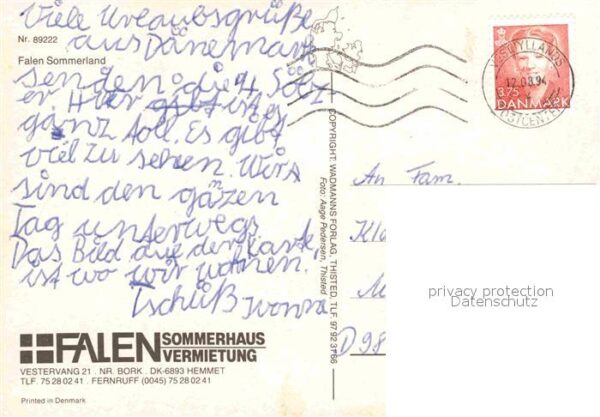 Viele Urlaubsgrüße
aus Dänemark
Nr. 89222
Falen Sommerland
senden die 4
er Hier gibt ist es
ganz toll. Es gibt
viel zu sehen. Wir
sind den ganzen
Tag unterwegs
Das Bild auf der Karte
ist wo wir wohnen.
Tschüß Ivonne
FALEN SOMMERHAUS
VERMIETUNG
VESTERVANG 21 · NR. BORK · DK-6893 HEMMET
TLF. 75 28 02 41 · FERNRUFF (0045) 75 28 02 41
Printed in Denmark
COPYRIGHT: WADMANNS FORLAG, THISTED, TLF. 97 92 31 66
Foto: Aage Pedersen, Thisted
VESTJYLLANDS
POSTCENTER
3.75
DANMARK
An Fam.
D 98
privacy protection
Datenschutz